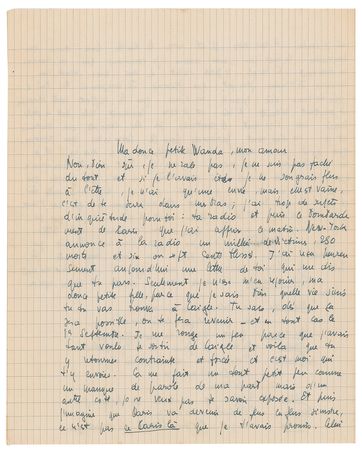 Ma douce petite Wanda, mon amour
Non, bien sûr, je ne râle pas, je ne suis pas fâché
du tout et si je l'avais été je ne songerais plus
à l'être, je n'ai qu'une envie, mais elle est vaine,
c'est de te tenir dans mes bras; j'ai trop de sujets
d'inquiétude pour toi: ta radio et puis ce bombarde
ment de Paris que j'ai appris ce matin. New-York
annonce à la radio un millier de victimes, 250
morts et six ou sept cents blessés. J'ai eu heureu
sement aujourd'hui une lettre de toi qui me dis
que tu pars. Seulement je n'ose m'en réjouir, ma
douce petite fille, parce que je sais bien quelle vie sinis
tre tu vas trouver à Laigle. Tu sais, dès que ça
sera possible, on te fera revenir _ et en tout cas le
1er Septembre. Je me ronge un peu parce que j'avais
tant voulu te sortir de Laigle et voilà que tu
y retournes contrainte et forcée et c'est moi qui
t'y envoie. Ça me fait un tout petit peu comme
un manque de parole de ma part mais d'un
autre côté je ne veux pas te savoir exposée. Et puis
j'imagine que Paris va devenir de plus en plus sinistre,
ce n'est pas ce Paris là que je t'avais promis. Celui